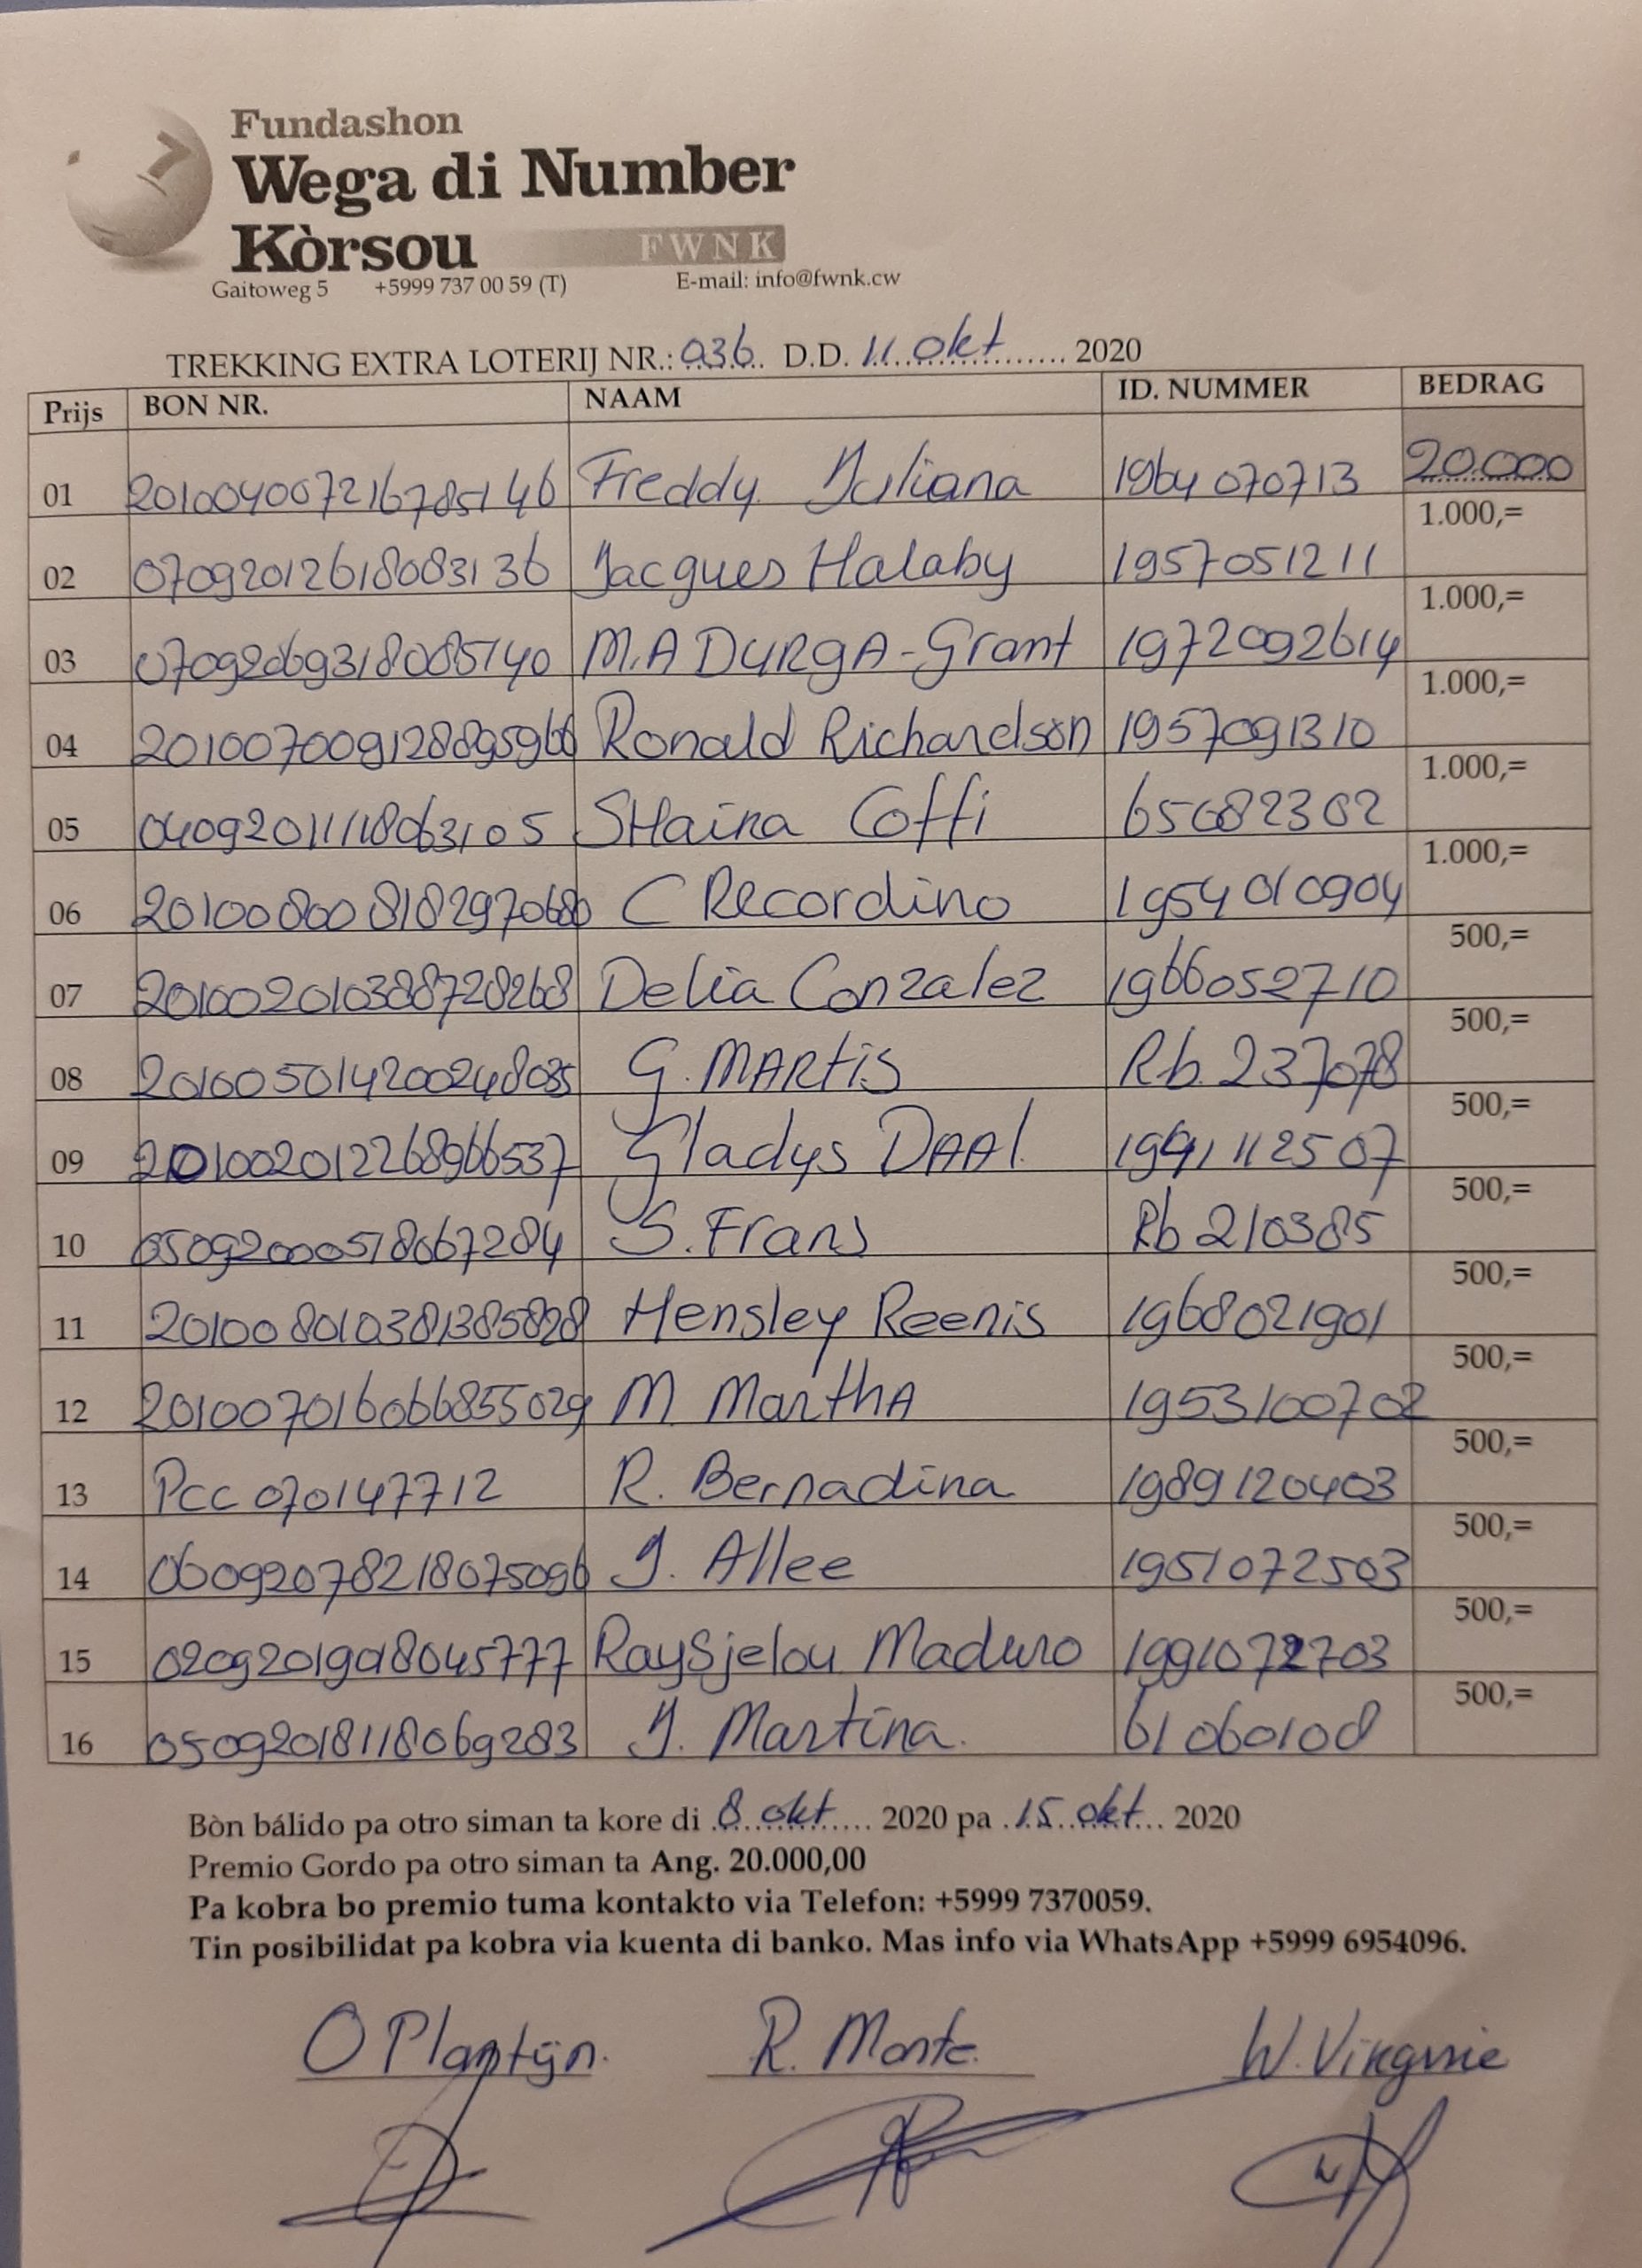 Fundashon
Wega di Number
Kòrsou FWNK
Gaitoweg 5 +5999 737 00 59 (T) E-mail: info@fwnk.cw
TREKKING EXTRA LOTERIJ NR.: 036 D.D. 11 okt 2020
Prijs BON NR. NAAM ID. NUMMER BEDRAG
01 20100400721678514 6 Freddy Juliana 1964070713 20.000
02 07092012618083136 Jacques Halaby 1957051211 1.000,=
03 07092069318085140 M.A DURgA-Grant 1972092614 1.000,=
04 Ronald Richardson 1957091310 1.000,=
05 04092011118063105 SHaira Coffi 65082302 1.000,=
06 C Recordino 1954010904 1.000,=
07 2010020103888728268 Delia Conzalez 1966052710 500,=
08 2010050142000248035 G. MARtiS Rb 237078 500,=
09 2010020122268966537 Gladys DAAl. 1941112507 500,=
10 0509200051806 7284 S. Frans Rb 210385 500,=
11 201008010381385828 Hensley Reenis 1968021901 500,=
12 2010070160668855029 M. MarthA 1953100702 500,=
13 Pcc 070147712 R. Bernadina 1989120403 500,=
14 0609207821807 5096 J. Allee 1951072503 500,=
15 0209201901804 5777 Raysjelou Maduro 1991072703 500,=
16 0509201811806 9283 J. Martina. 61060108 500,=
Bòn bálido pa otro siman ta kore di 8 okt 2020 pa 15 okt 2020
Premio Gordo pa otro siman ta Ang. 20.000,00
Pa kobra bo premio tuma kontakto via Telefon: +5999 7370059.
Tin posibilidat pa kobra via kuenta di banko. Mas info via WhatsApp +5999 6954096.
O Plantijn. R. Monte. W. Virginie